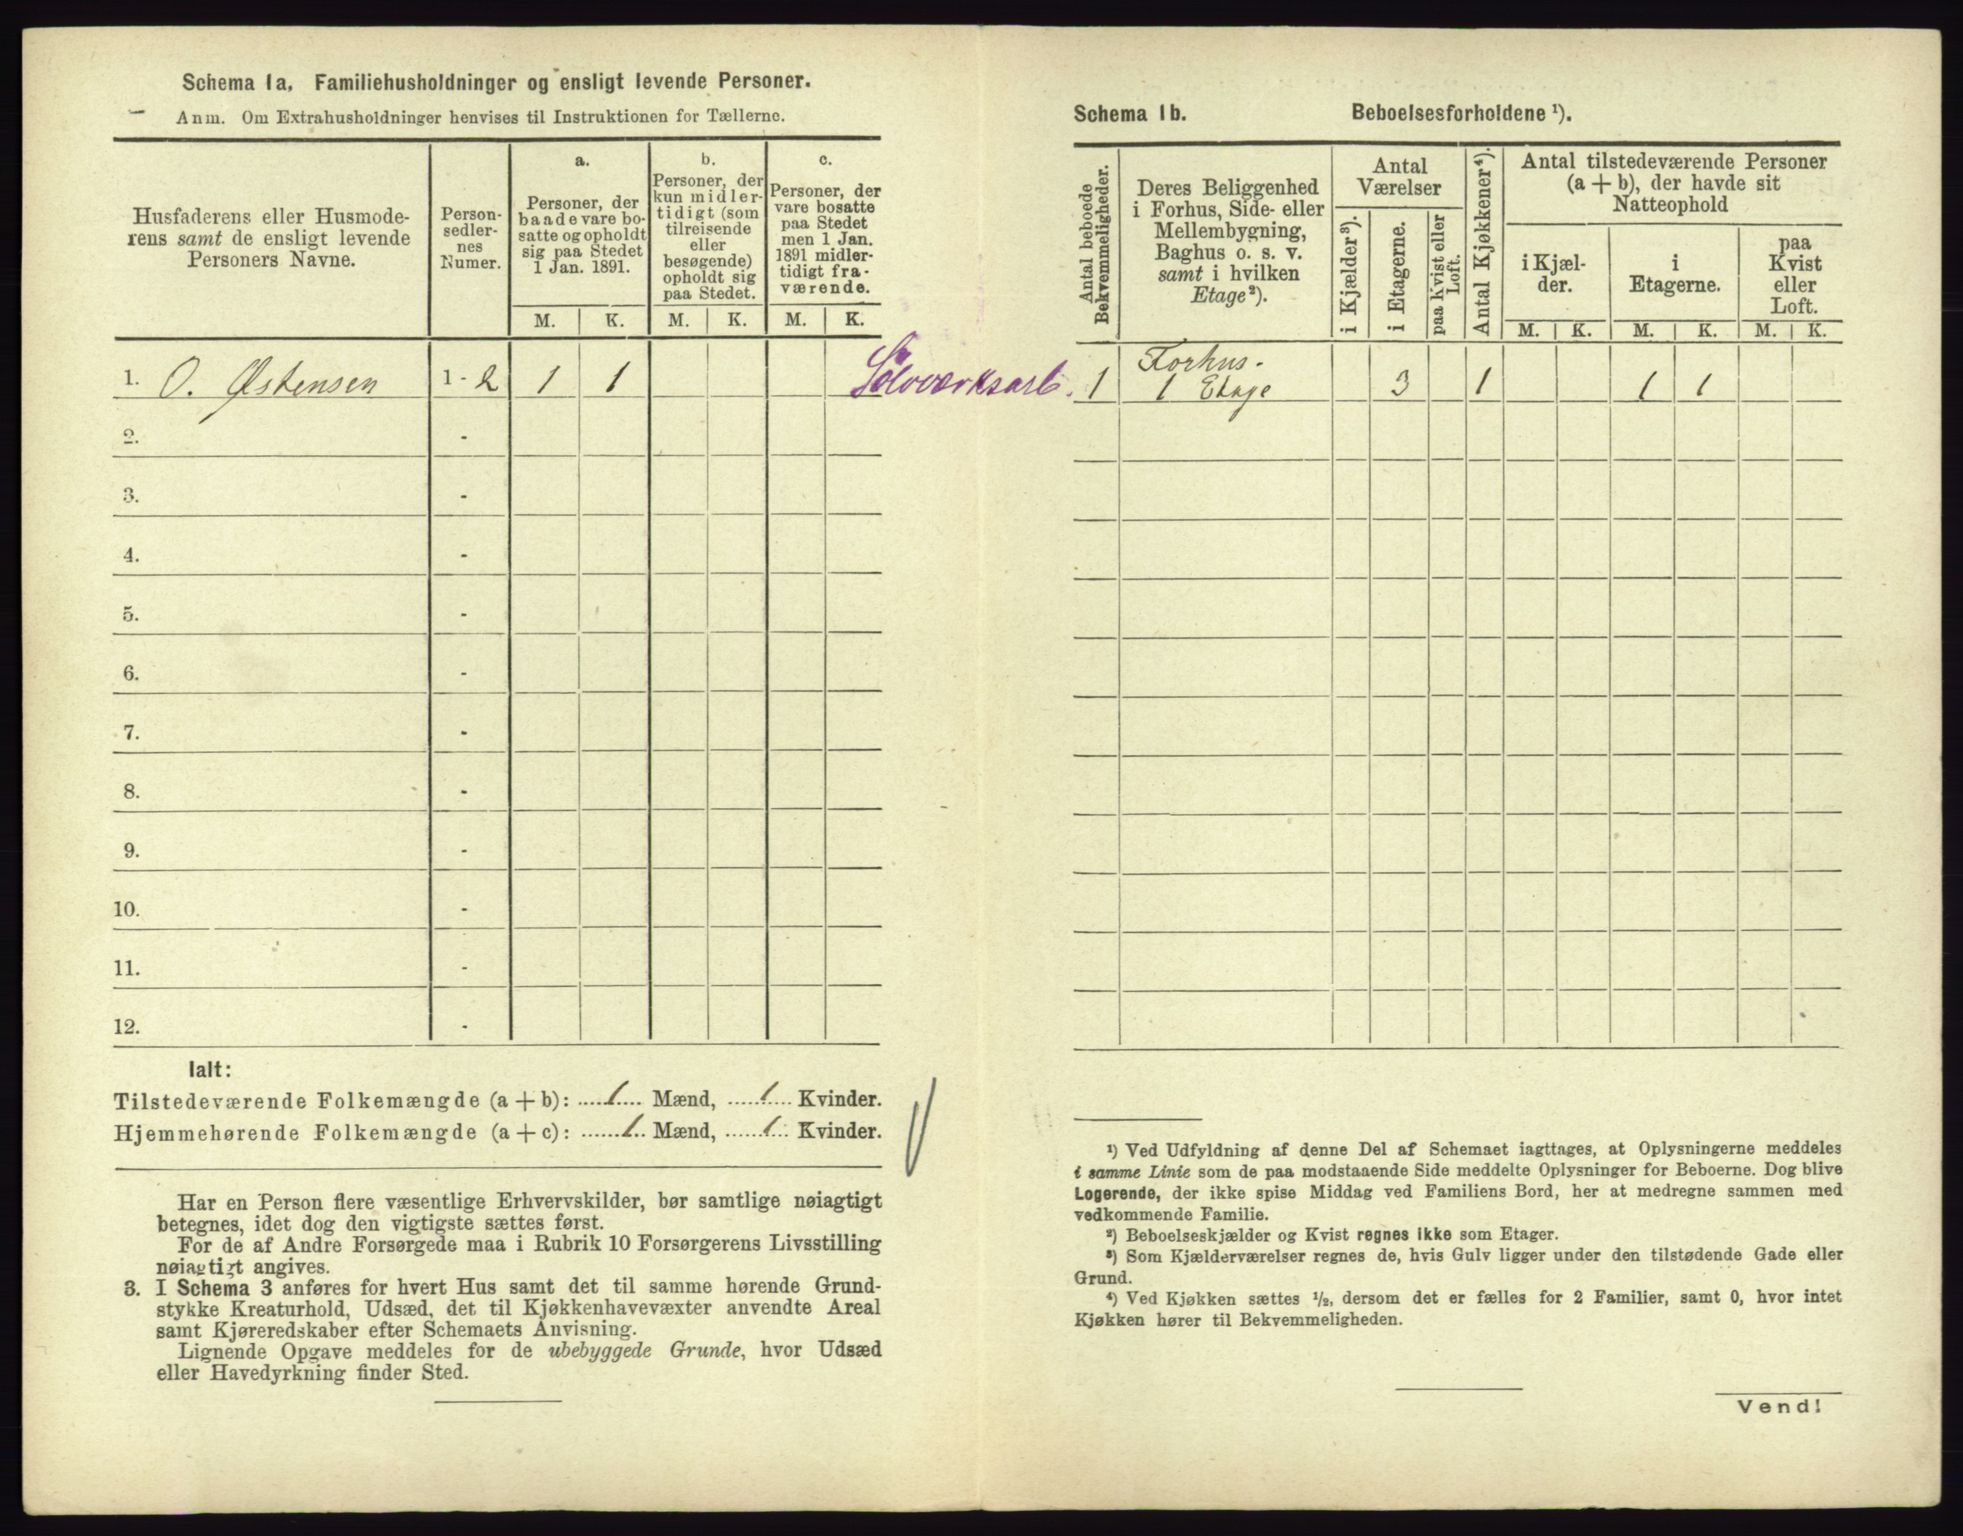 Schema 1a. Familiehusholdninger og ensligt levende Personer.
Anm. Om Extrahusholdninger henvises til Instruktionen for Tællerne.
Husfaderens eller Husmode-
rens samt de ensligt levende
Personers Navne.
Person-
sedler-
nes
Numer.
a.
Personer, der
baade vare bo-
satte og opholdt
sig paa Stedet
1 Jan. 1891.
b.
Personer, der
kun midler-
tidigt (som
tilreisende
eller
besøgende)
opholdt sig
paa Stedet.
c.
Personer, der
vare bosatte
paa Stedet
men 1 Jan.
1891 midler-
tidigt fra-
værende.
M. K. M. K. M. K.
1. O. Østensen 1 - 2 1 1 Sølvværksarb.
2. -
3. -
4. -
5. -
6. -
7. -
8. -
9. -
10. -
11. -
12. -
Ialt:
Tilstedeværende Folkemængde (a + b): 1 Mænd, 1 Kvinder.
Hjemmehørende Folkemængde (a + c): 1 Mænd, 1 Kvinder.
Har en Person flere væsentlige Erhvervskilder, bør samtlige nøiagtigt
betegnes, idet dog den vigtigste sættes først.
For de af Andre Forsørgede maa i Rubrik 10 Forsørgerens Livsstilling
nøiagtigt angives.
3. I Schema 3 anføres for hvert Hus samt det til samme hørende Grund-
stykke Kreaturhold, Udsæd, det til Kjøkkenhavevæxter anvendte Areal
samt Kjøreredskaber efter Schemaets Anvisning.
Lignende Opgave meddeles for de ubebyggede Grunde, hvor Udsæd
eller Havedyrkning finder Sted.
Schema 1b. Beboelsesforholdene ¹).
Antal beboede
Bekvemmeligheder.
Deres Beliggenhed
i Forhus, Side- eller
Mellembygning,
Baghus o. s. v.
samt i hvilken
Etage²).
Antal
Værelser
i Kjælder³).
i Etagerne.
paa Kvist eller
Loft.
Antal Kjøkkener⁴).
Antal tilstedeværende Personer
(a + b), der havde sit
Natteophold
i Kjæl-
der.
i
Etagerne.
paa
Kvist
eller
Loft.
M. K. M. K. M. K.
1 Forhus.
1 Etage 3 1 1 1
¹) Ved Udfyldning af denne Del af Schemaet iagttages, at Oplysningerne meddeles
i samme Linie som de paa modstaaende Side meddelte Oplysninger for Beboerne. Dog blive
Logerende, der ikke spise Middag ved Familiens Bord, her at medregne sammen med
vedkommende Familie.
²) Beboelseskjælder og Kvist regnes ikke som Etager.
³) Som Kjælderværelser regnes de, hvis Gulv ligger under den tilstødende Gade eller
Grund.
⁴) Ved Kjøkken sættes ½, dersom det er fælles for 2 Familier, samt 0, hvor intet
Kjøkken hører til Bekvemmeligheden.
Vend!